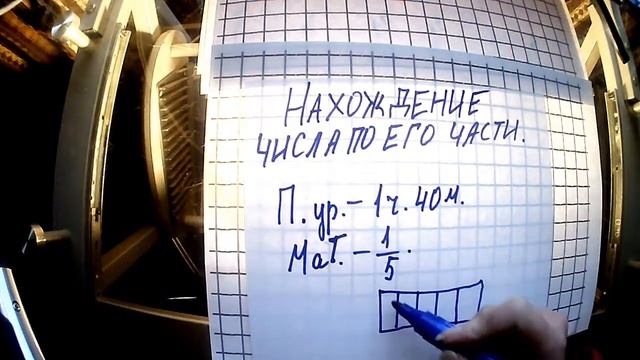 НАХОЖДЕНИЕ
ЧИСЛА ПО ЕГО ЧАСТИ.
П. ур. – 1 ч. 40 м.
Мат. – 1/5.